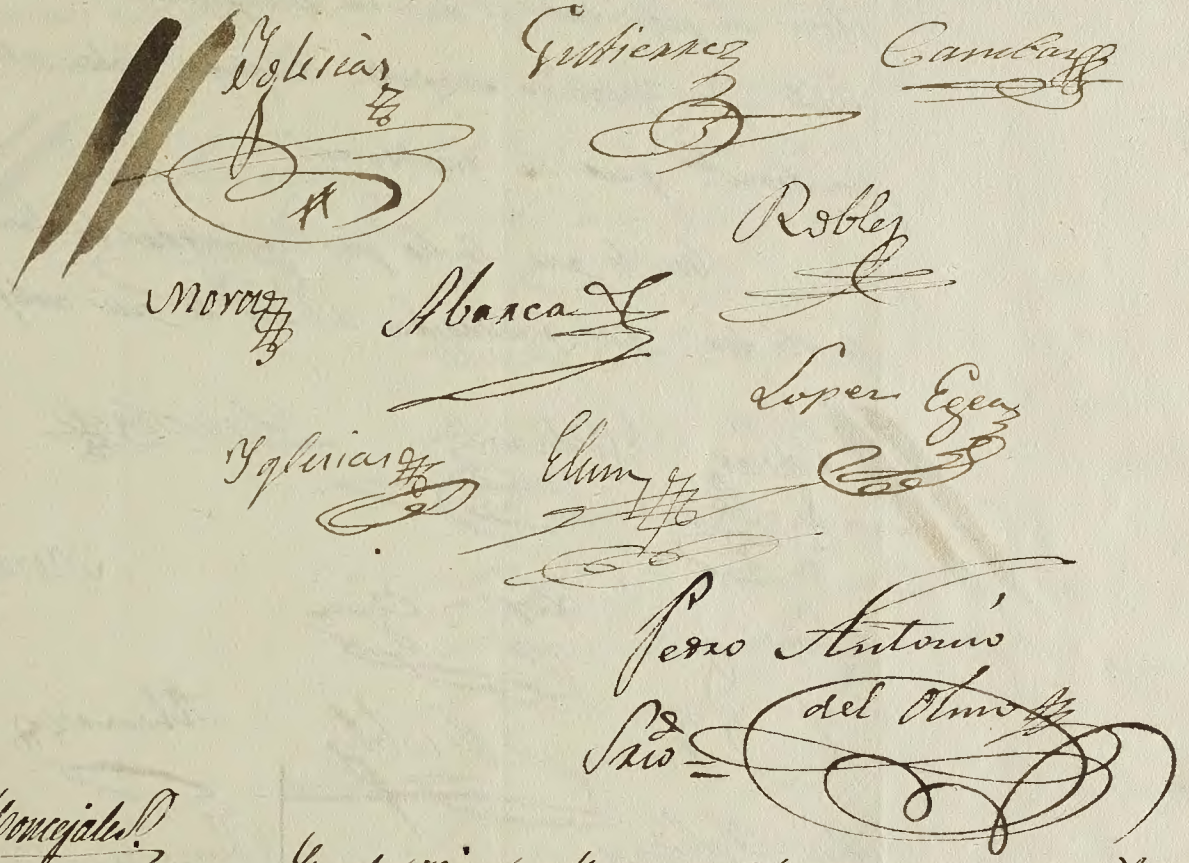 Yglesias Gutierrez Cambas
Robles
Mora Abarca
Lopez Egea
Yglesias Elum
Pedro Antonio
del Olmo
Srio
Concejales